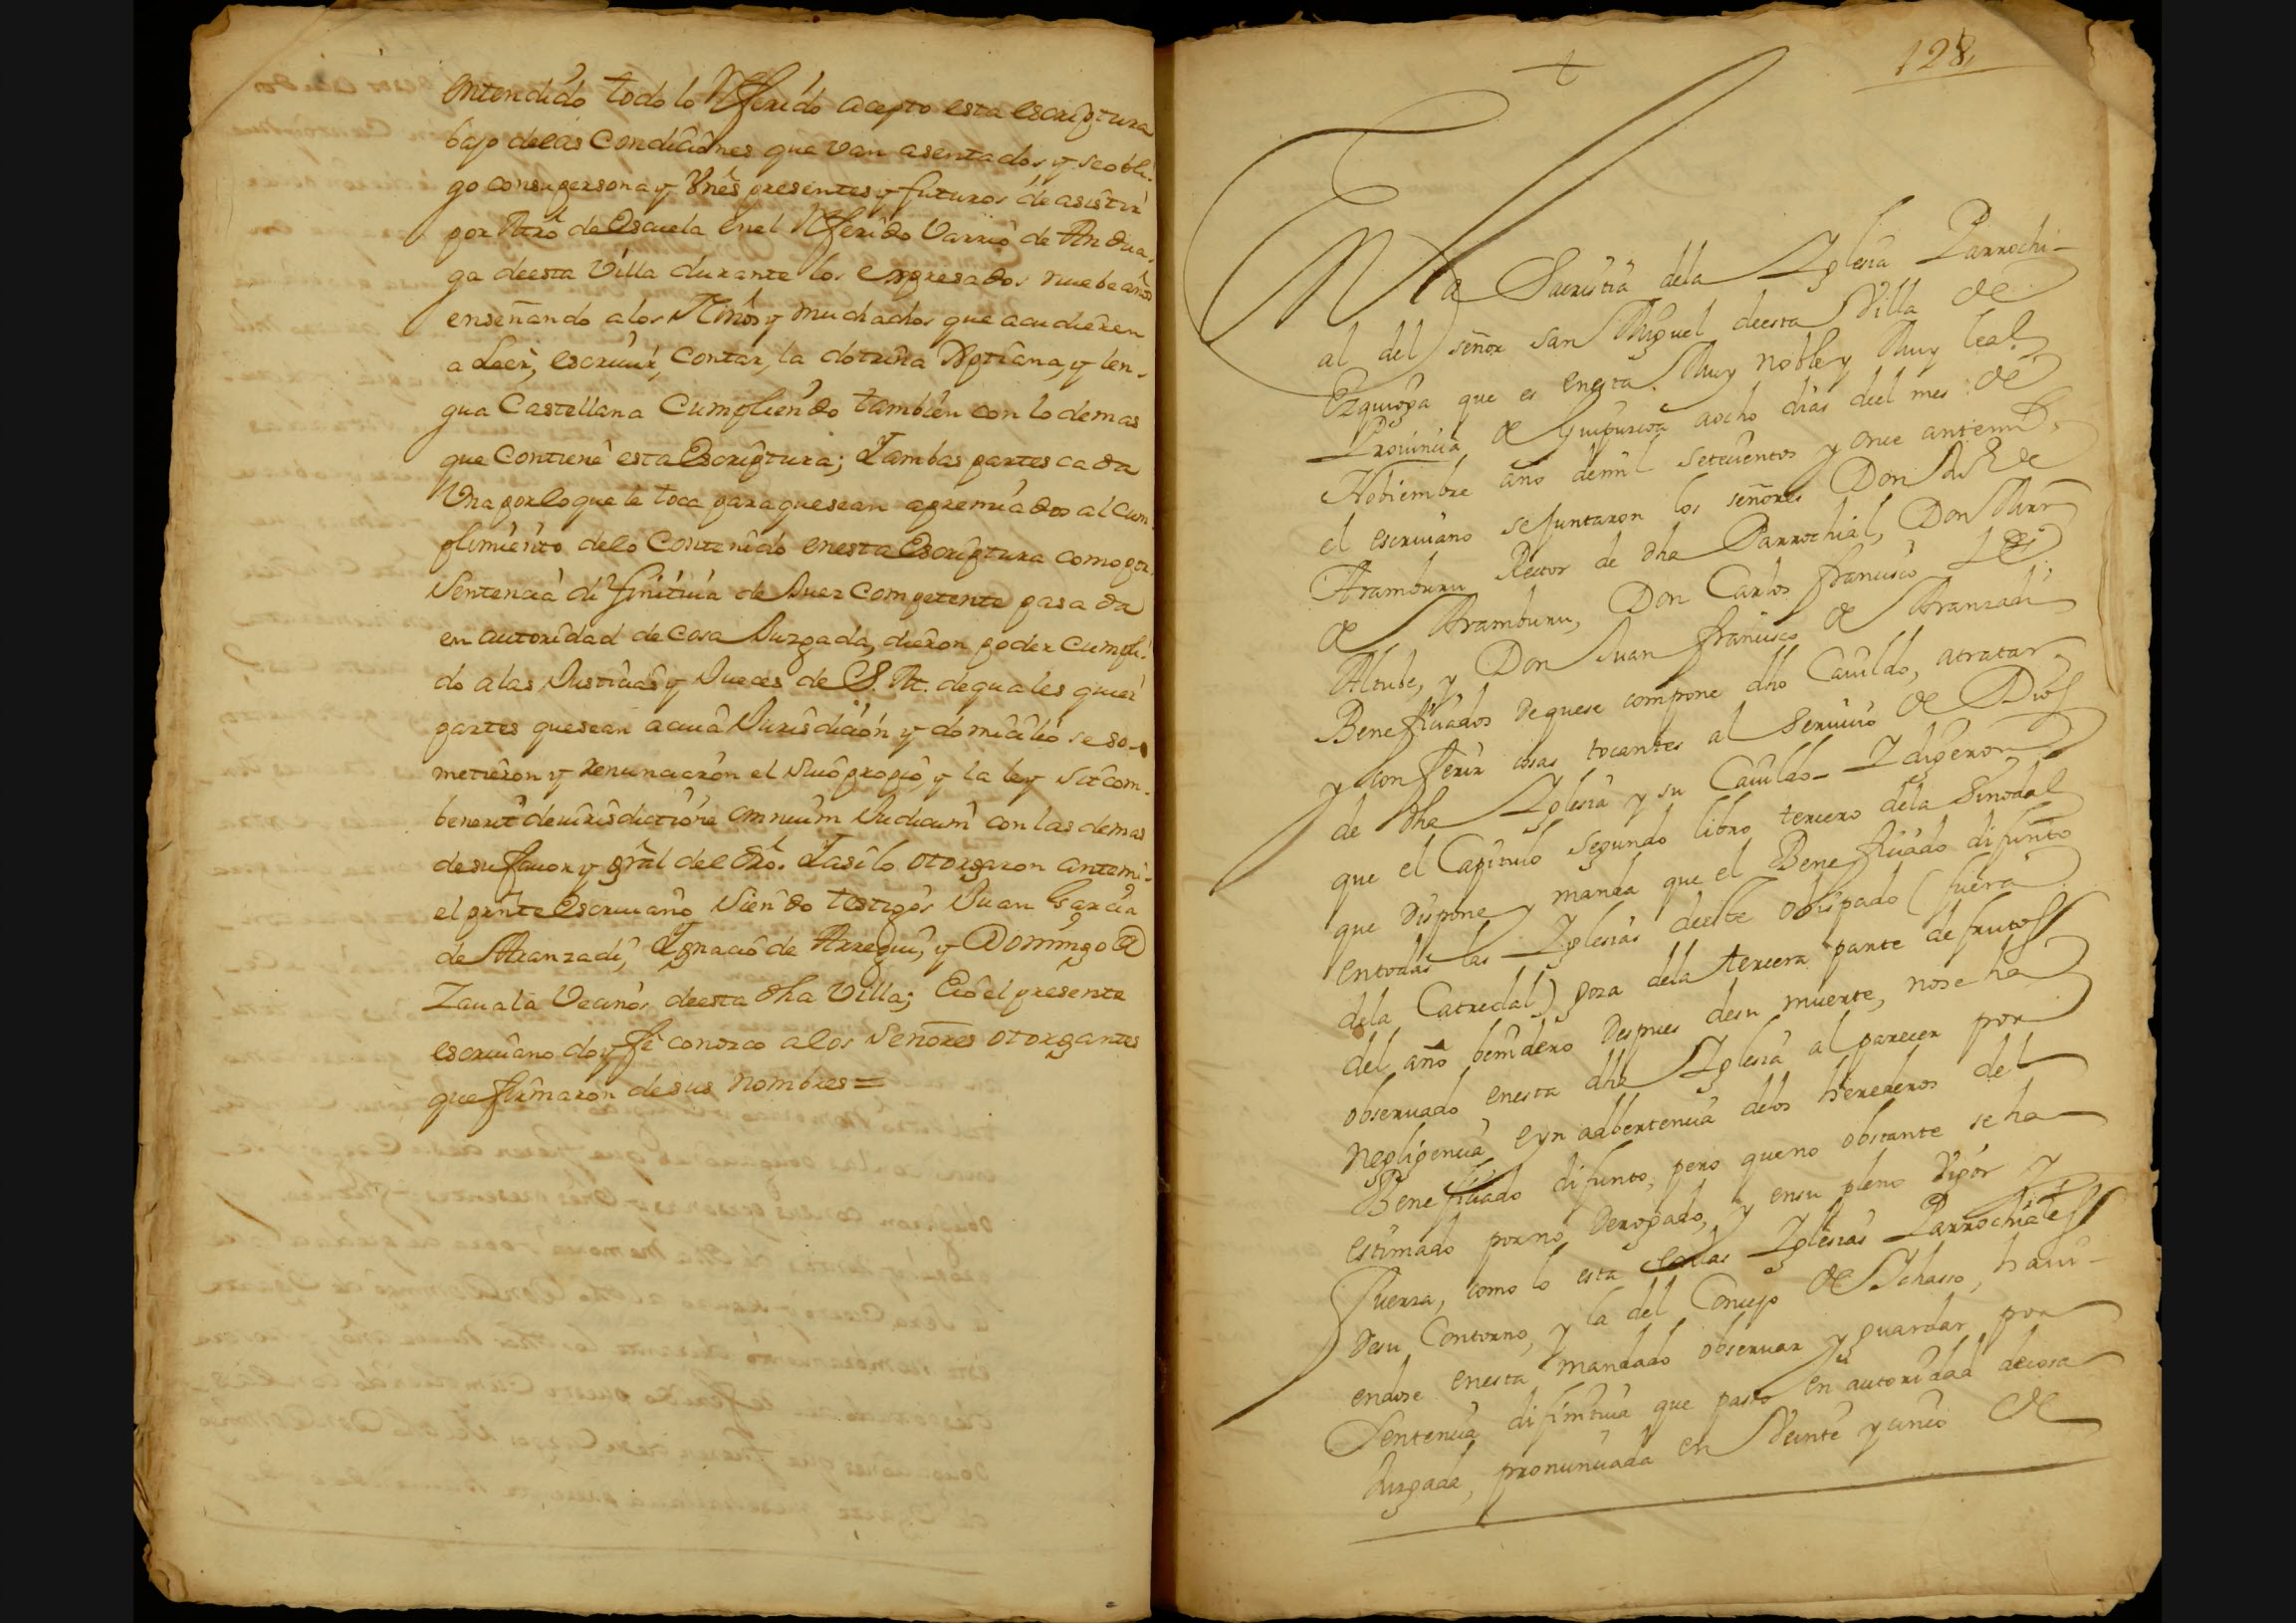 entendido todo lo Referido acepto esta escriptura
bajo delas Condiciones que van asentados, y se obli-
go con su persona y Vnes presentes y futuros de asistir
por Mro de Escuela enel Referido Varrio de Andua-
ga deesta Villa durante los expresados nuebe años
enseñando alos Niños y muchachos que acudieren
a Leer, escriuir, contar, la dotrina Xptiana, y len-
gua Castellana Cumpliendo tambien con lo demas
que Contiene esta Escriptura; Y ambas partes cada
Vna por lo que le toca para que sean apremiados al cum-
plimiento delo Contenido enesta Escriptura como por
Sentencia difinitiua de Juez Competente pasada
en autoridad de cosa Juzgada, dieron poder cumpli-
do alas Justicias y Jueces de S. M. de quales quier
partes que sean a cuia Jurisdicion y domicilio se so-
metieron y renunciaron el suio propio, y la ley Sit com-
benerit de iurisdictione omnium Judicum con las demas
de su fauor y gral del dro. Y asi lo otorgaron antemi
el prnte Escriuano Siendo testigos Juan Garcia
de Aranzadi, Ygnacio de Arregui, y Domingo de
Zauala Vecinos deesta dha Villa; E io el presente
escriuano doy fe conozco alos Señores otorgantes
que firmaron de sus nombres =
128
En la Sacristia dela Yglesia Parrochi-
al del señor San Miguel deesta Villa de
Ezquioga que es enesta Muy noble y Muy leal
Prouincia de Guipuzcoa a ocho dias del mes de
Nobiembre año demil setecientos y once antemi
el escriuano se juntaron los señores Don de
Aramburu Rector de dha Parrochial, Don Marn
de Aramburu, Don Carlos francisco de
Altube, y Don Juan francisco de Aranzadi
Beneficiados de que se compone dho Cauildo, atratar
y conferir cosas tocantes al Seruicio de Dios
de dha Yglesia y su Cauildo- Y digeron
que el Capitulo segundo libro tercero dela Sinodal
que dispone y manda que el Beneficiado difunto
entodas las Yglesias deeste Obispado (fuera
dela Catredal) goza dela tercera parte de frutos
del año benidero despues desu muerte, nose ha
obseruado enesta dha Yglesia al parecer por
negligencia e yn adbertencia delos herederos del
Beneficiado difunto, pero que no obstante se ha
estimado por no derogado, y ensu pleno vigor y
fuerza, como lo esta enlas Yglesias Parrochiales
desu Contorno, y la del Concejo de Ychasso, haui-
endose enesta mandado obseruar y guardar por
Sentencia difinitiua que paso en autoridad de cosa
Juzgada, pronunciada en Veinte y cinco de